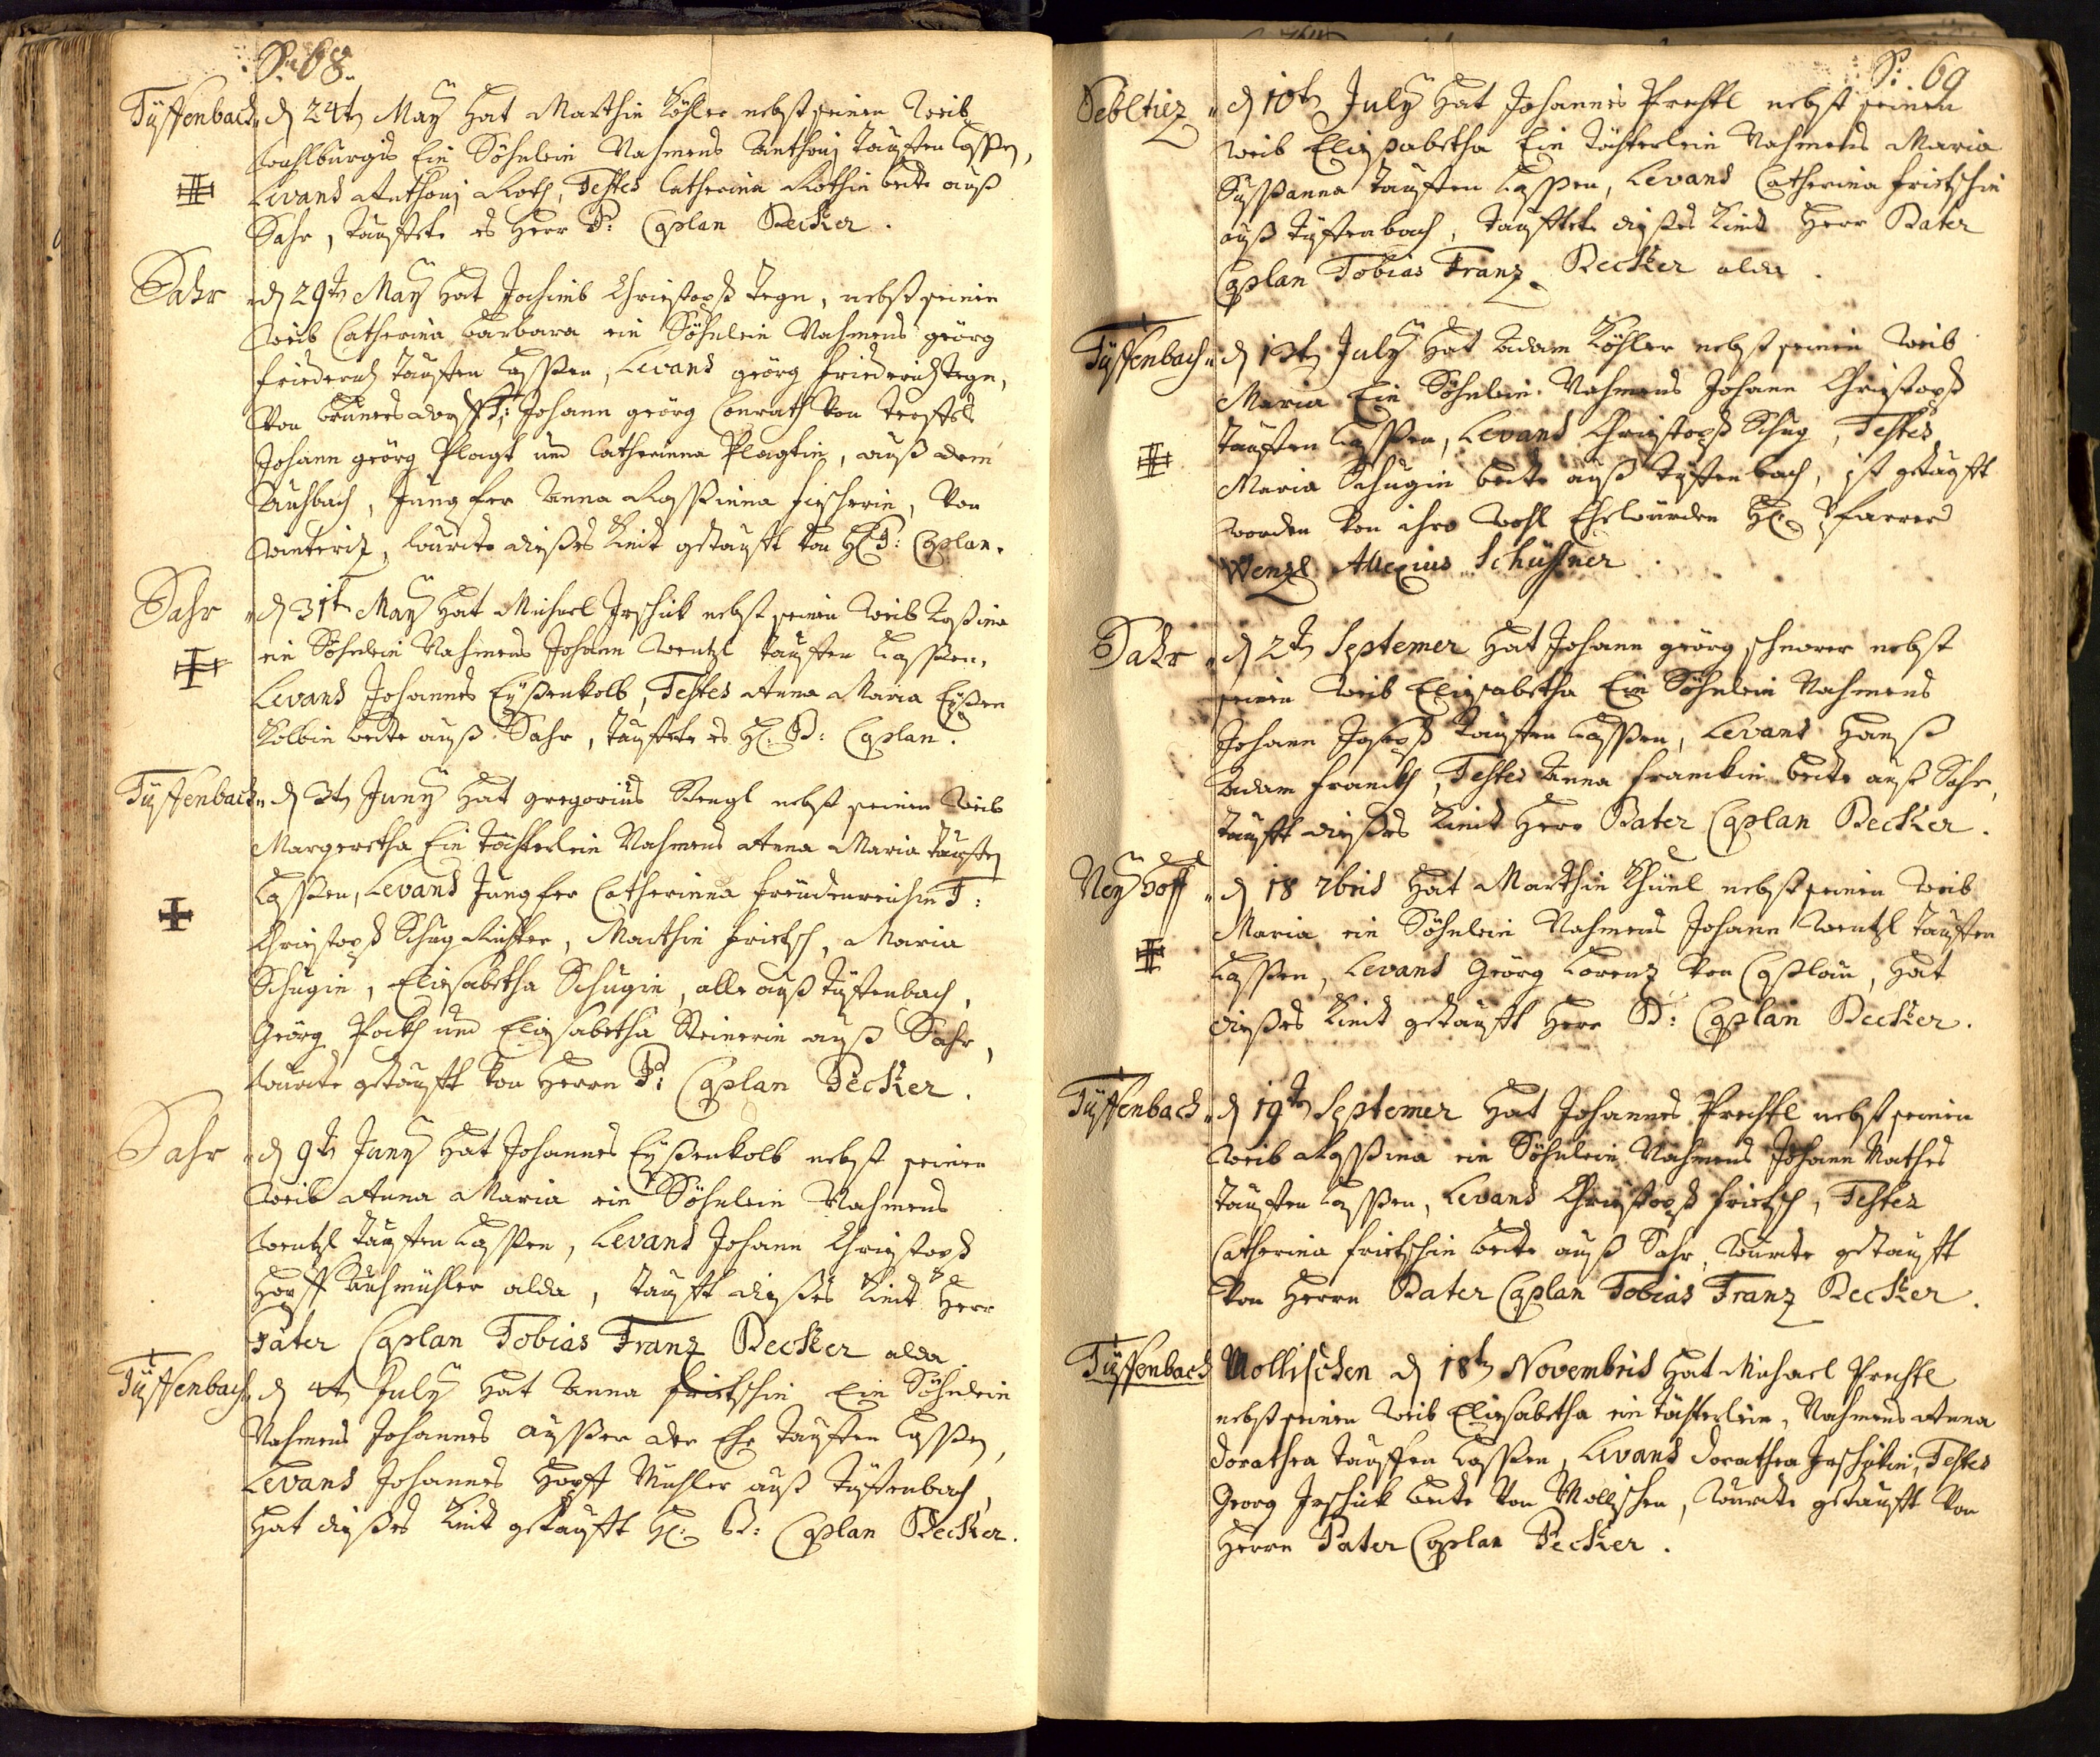 P: 68.
Tyffenbach „ d 24tn May hat Marthin Köhler nebst seinen Weib
Wahlburgis Ein Söhnlein Nahmens Anthonj Tauffen Lassen,
Levans Anthonj Roth, Testes Catherina Rothin beite auß
Sahr, Tauffete es Herr P: Caplan Becker.
Sahr „ d 29tn May hat Jochimb Christoph Tegn, nebst seinen
Weib Catherina Barbara ein Söhnlein Nahmens Geörg
Friederich Tauffen Lassen, Levans Geörg Friederich Tegn,
Von T: Johann Geörg Conrath Von
Johann Geörg Plagt und Catherinna Plagtin, auß dem
Auchbach, Jungfer Anna Rossinna Fischerin, Von
Winteriz, Wurte dießes Kint getaufft Von H: P: Caplan.
Sahr „ d 31tn May hat Michael Irschick nebst seinen Weib Rosina
ein Söhnlein Nahmens Johann Wentzl Tauffen Lassen,
Levans Johannes Eyßenkolb, Testes Anna Maria Eyßen
Kolbin beite auß Sahr, Tauffete es H: P: Caplan.
Tyffenbach „ d 3tn Juny hat Gregorius Stengl nebst seinen Weib
Margeretha Ein Töchterlein Nahmens Anna Maria Tauffen
Lassen, Levans Jungfer Catherinna Freüdenreichin T:
Christoph Schug Richter, Marthin Fritsch, Maria
Schugin, Eliesabetha Schugin, alle auß Tyffenbach,
Geörg Pöckh und Eliesabetha Steinerin auß Sahr,
Wurte getaufft Von Herrn P: Caplan Becker.
Sahr „ d 9tn Juny hat Johannes Eyßenkolb nebst seinen
Weib Anna Maria ein Söhnlein Nahmens
Wentzl Tauffen Lassen, Levans Johann Christoph
Hopff Buchmühler alda, Taufft dießes Kint Herr
Pater Caplan Tobias Franz Becker alda
Tyffenbach „ d 4tn July hat Anna Fritschin Ein Söhnlein
Nahmens Johannes Aussser der Ehe Tauffen Lassen,
Levans Johannes Hopff Muhler auß Tyffenbach,
hat dießes Kint getaufft H: P: Caplan Becker.
P: 69
Pebltiez „ d 10tn July hat Johannes Prechtl nebst seinen
Weib Eliesabetha Ein Töchterlein Nahmens Maria
Sussanna Tauffen Lassen, Levans Catherina Fritschin
auß Tyffenbach, Tauffete dießes Kint Herr Pater
Caplan Tobias Franz Becker alda.
Tyffenbach „ d 13tn July hat Adam Köhler nebst seinen Weib
Maria Ein Söhnlein Nahmens Johann Christoph
Tauffen Lassen, Levans Christoph Schug, Testes
Maria Schugin beite auß Tyffenbach, ist getaufft
worden Von ihro Wohl Ehrwürden H: Pfarrer
Wenzl Allexius Schuffner
Sahr „ d 2tn Septemer hat Johann Geörg Schnorer nebst
seinen Weib Eliesabetha Ein Söhnlein Nahmens
Johann Joseph Tauffen Lassen, Levans Hanß
Adam Franckh, Testes Anna Franckin beite auß Sahr,
Taufft dießes Kint Herr Pater Caplan Becker.
Neyhoff „ d 18 7bris hat Marthin Khünl nebst seinen Weib
Maria ein Söhnlein Nahmens Johann Wentzl Tauffen
Lassen, Levans Geörg Lorenz Von Caßlau, hat
dießes Kint getaufft Herr P: Caplan Becker.
Tyffenbach „ d 19tn Septemer hat Johannes Prechtl nebst seinen
Weib Rossina ein Söhnlein Nahmens Johann Mathes
Tauffen Lassen, Levans Christoph Fritsch, Testes
Catherina Fritschin beite auß Sahr, Wurte getaufft
Von Herrn Pater Caplan Tobias Franz Becker.
Tyffenbach Mollischen d 18tn Novembris hat Michael Prechtl
nebst seinen Weib Eliesabetha ein Töchterlein, Nahmens Anna
Dorathea Tauffen Lassen, Levans Dorathea Irschikin, Testes
Georg Irschick beite Von Mollischen, Wurte getaufft Von
Herrn Pater Caplan Becker.